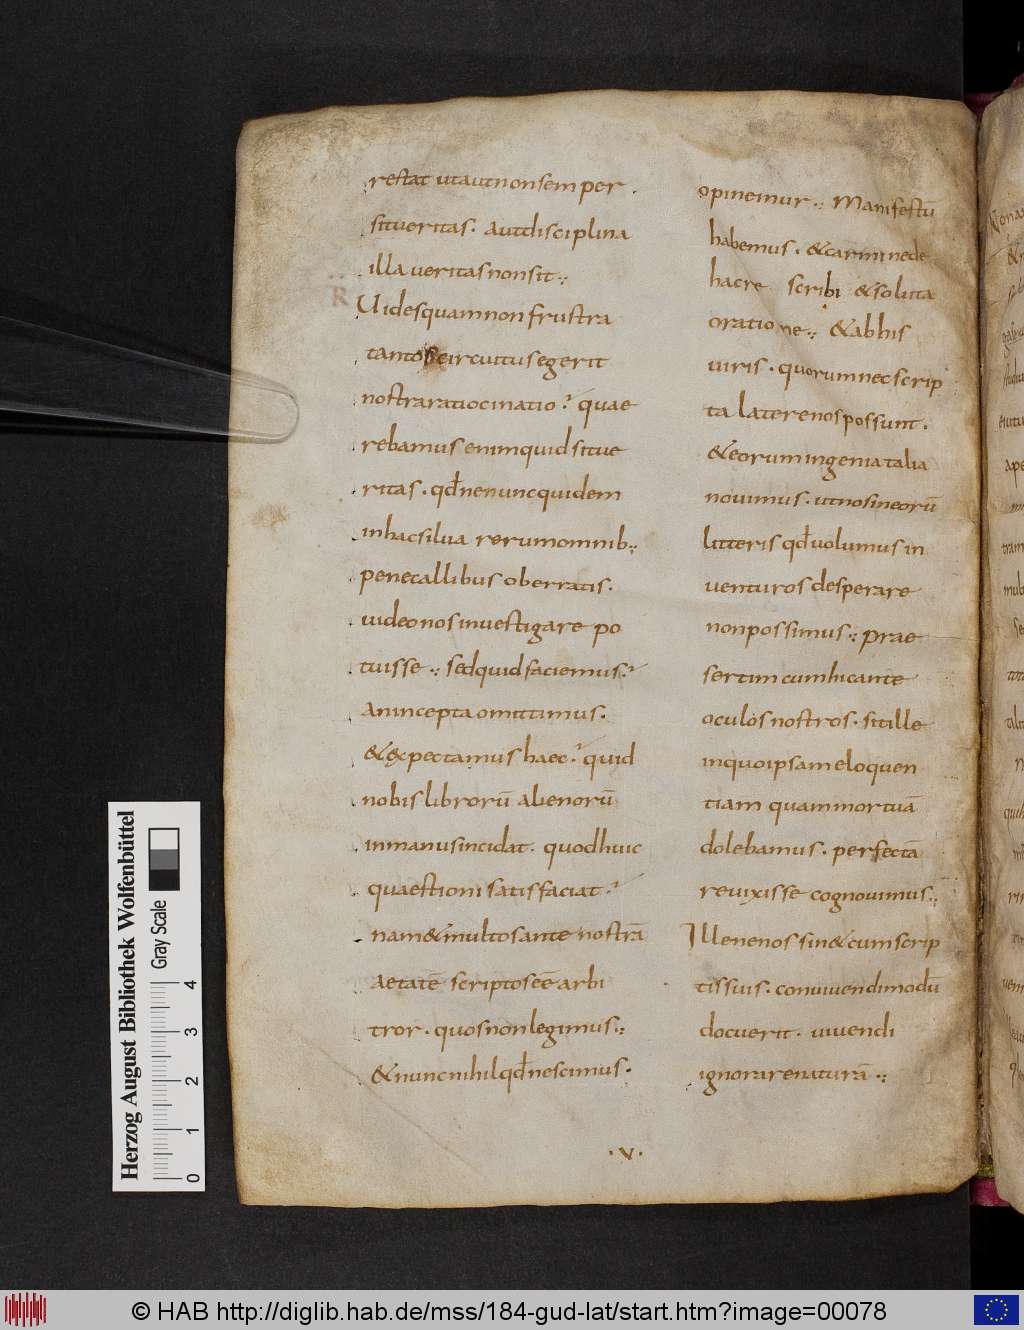 restat utautnonsemper .
situeritas. autdisciplina
illa ueritasnonsit :;
R
Uidesquamnonfrustra
tantoscircuitusegerit
nostraratiocinatio? quae
rebamusenimquidsitue
ritas. qđnenuncquidem
inhacsilua rerumomnib:;
penecallibusoberratis.
uideonosinuestigare po
tuisse :; sedquidfaciemus?
Anincepta omittimus.
&expectamushaec? quid
nobislibrorū alienorū
inmanusincidat. quodhuic
quaestionisatisfaciat?
nam&multosante nostrā
aetatē scriptoseē arbi
tror. quosnonlegimus :;
&nuncnihilqđnescimus.
opinemur :; Manifestū
habemus. &carminede
hacre scribi &soluta
oratione :; &abhis
uiris. quorumnecscrip
ta laterenospossunt.
&eorumingeniatalia
nouimus. utnosineorū
litteris qđuolumusin
uenturosdesperare
nonpossimus :; prae
sertimcumhicante
oculosnostros. sitille
inquoipsameloquen
tiam quammortuā
dolebamus. perfectā
reuixisse cognouimus :;
Illenenossin&cumscrip
tissuis. conuiuendimodū
docuerit. uiuendi
ignorarenaturā :;
.V.
Herzog August Bibliothek Wolfenbüttel
Gray Scale
0 1 2 3 4
© HAB http://diglib.hab.de/mss/184-gud-lat/start.htm?image=00078